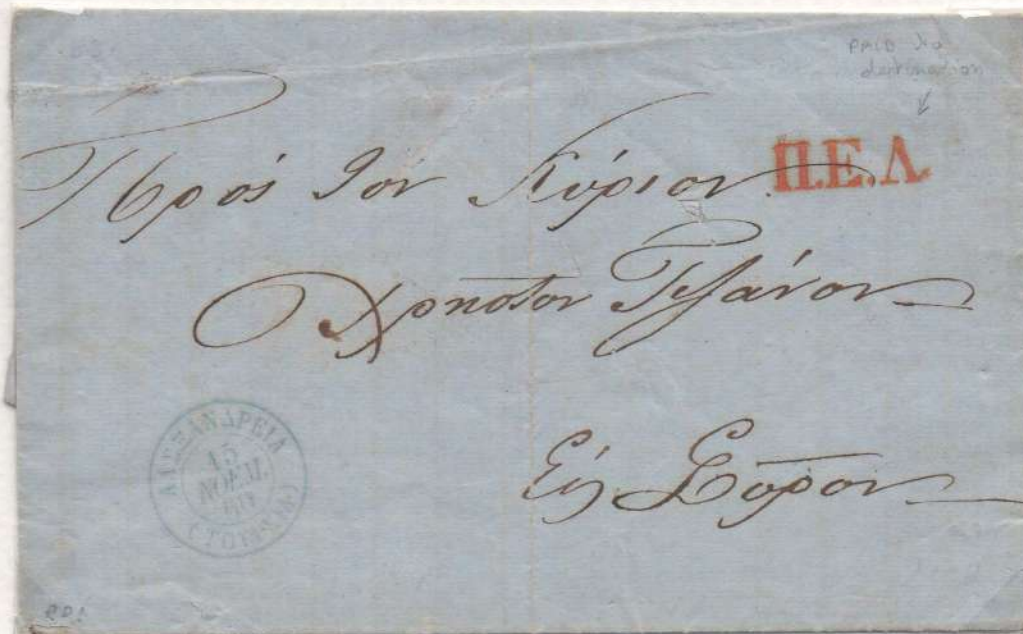 PAID to
destination
Π.Ε.Λ.
Πρὸς τὸν Κύριον
Χρῆστον Τζάνον
Εἰς Σῦρον
ΑΛΕΞΑΝΔΡΕΙΑ
15
ΝΟΕΜ.
60
(ΤΟΥΡΚΙΑ)